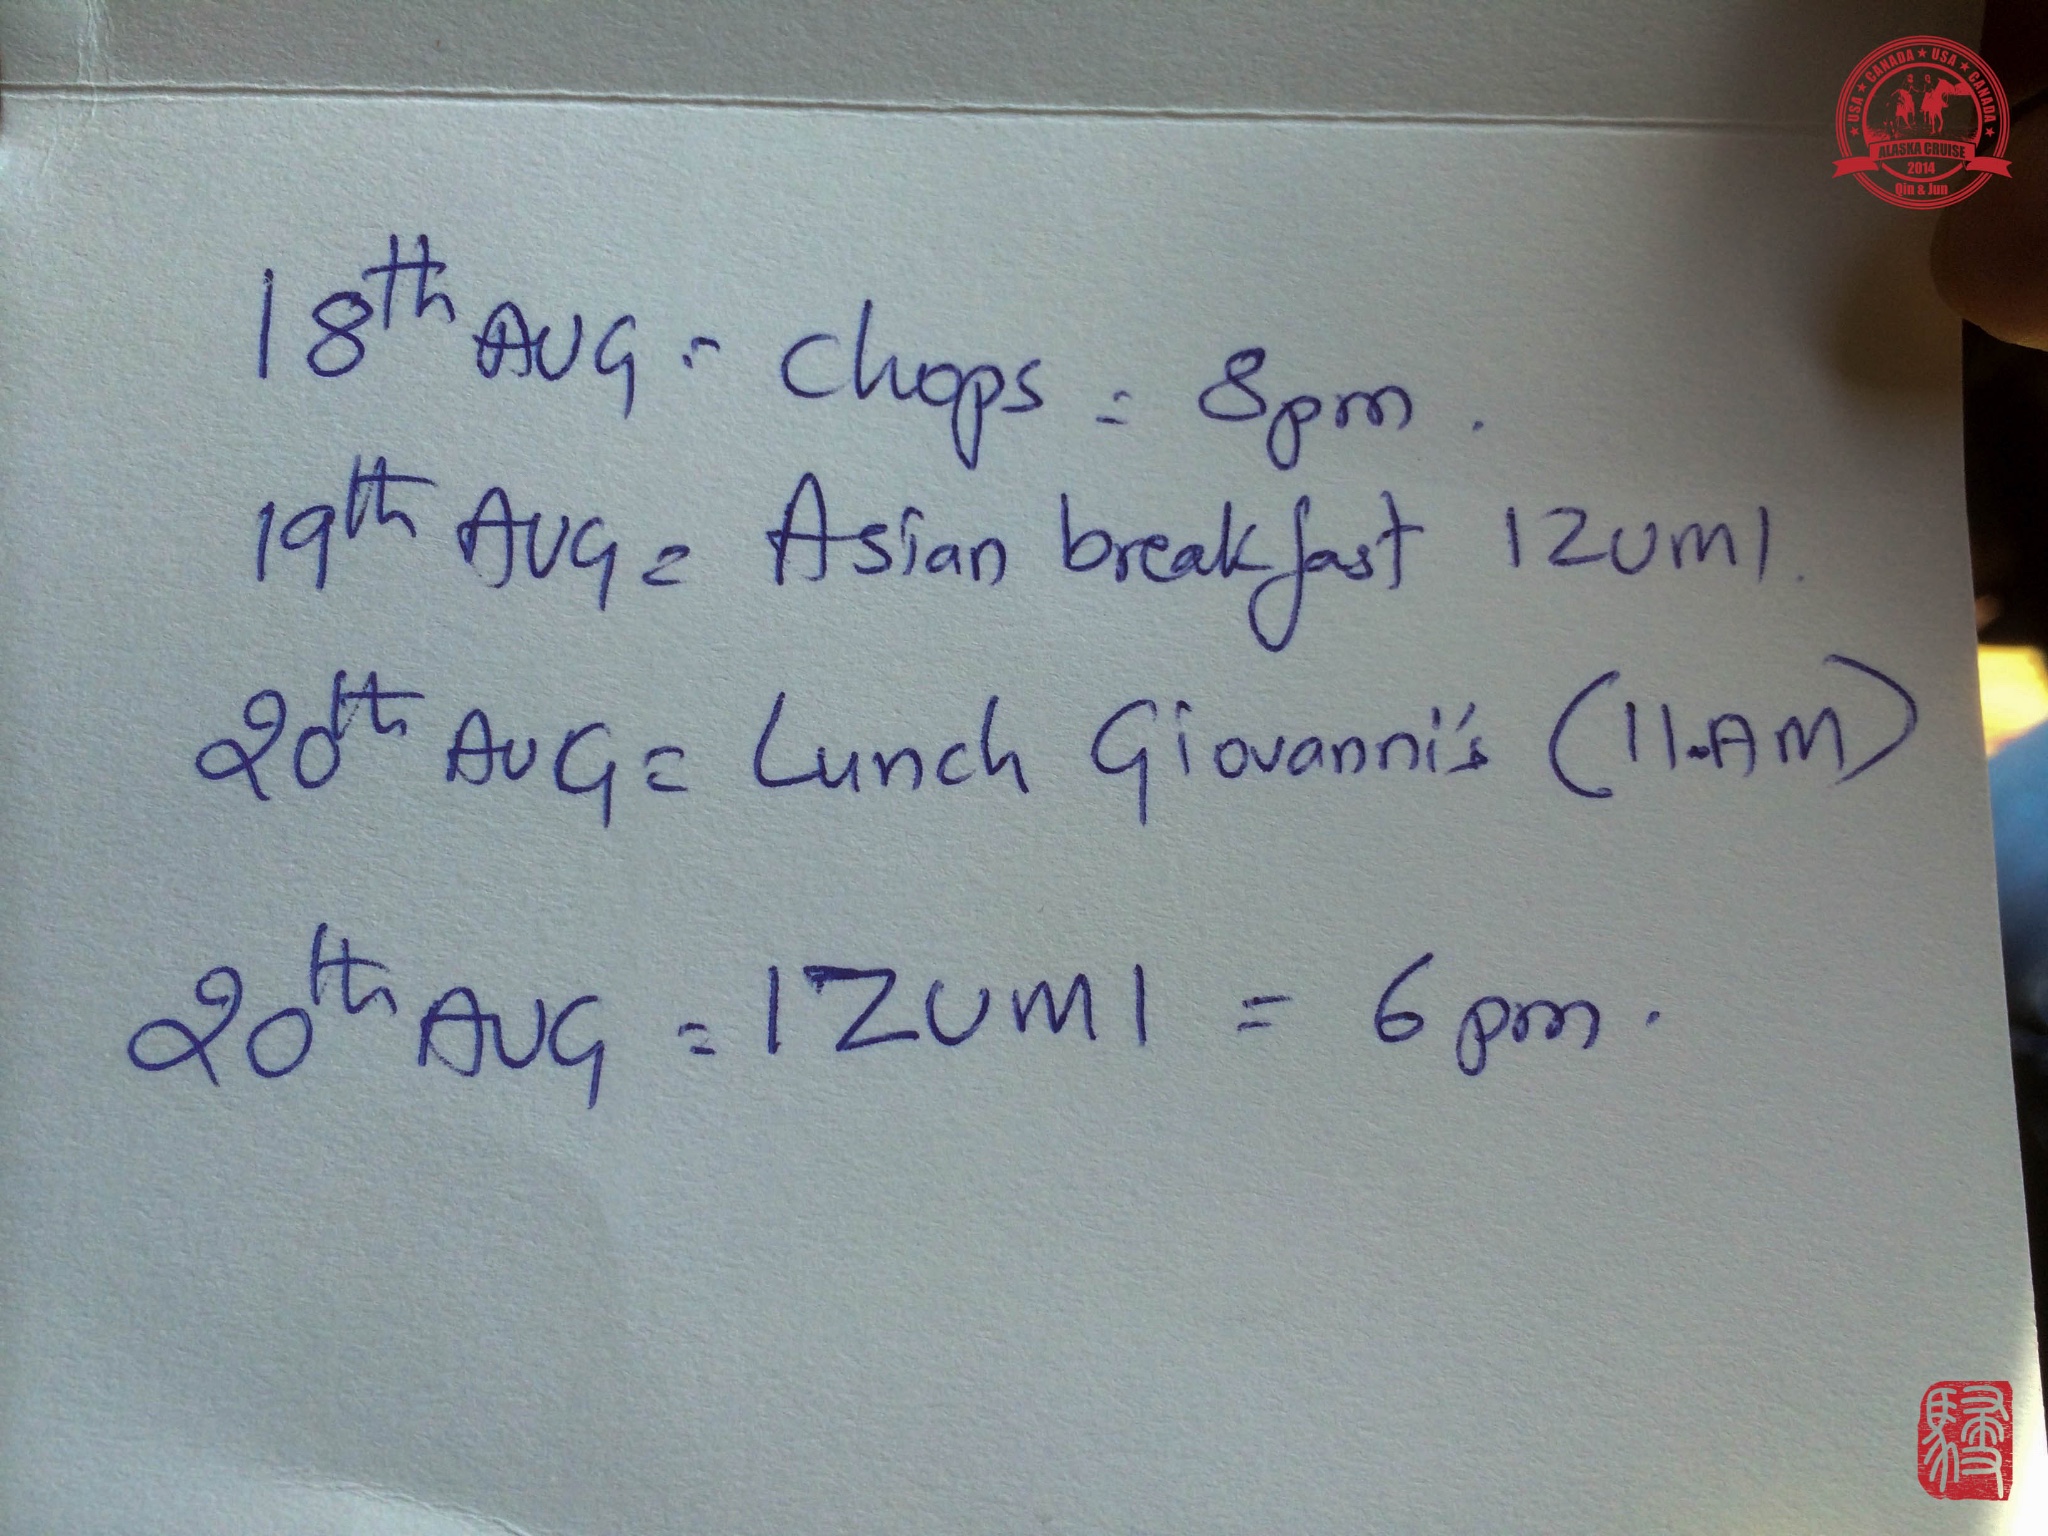 ★ USA ★ CANADA ★ USA ★ CANADA ★
ALASKA CRUISE
2014
Qin & Jun
18th AUG = Chops = 8pm.
19th AUG = Asian breakfast IZUMI.
20th AUG = Lunch Giovanni's (11.AM)
20th AUG = IZUMI = 6pm.